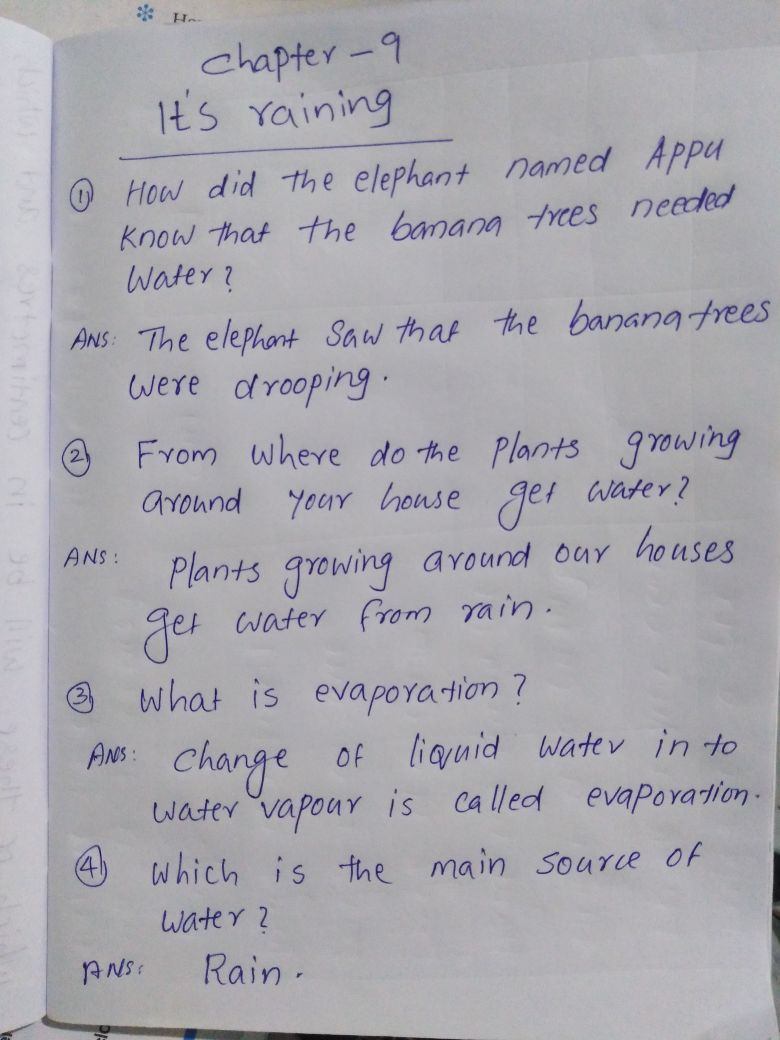 Chapter - 9
It's raining
① How did the elephant named Appu
know that the banana trees needed
water?
ANS: The elephant saw that the banana trees
were drooping.
② From where do the plants growing
around your house get water?
ANS: Plants growing around our houses
get water from rain.
③ What is evaporation?
ANS: Change of liquid water in to
water vapour is called evaporation.
④ Which is the main source of
water?
ANS: Rain.